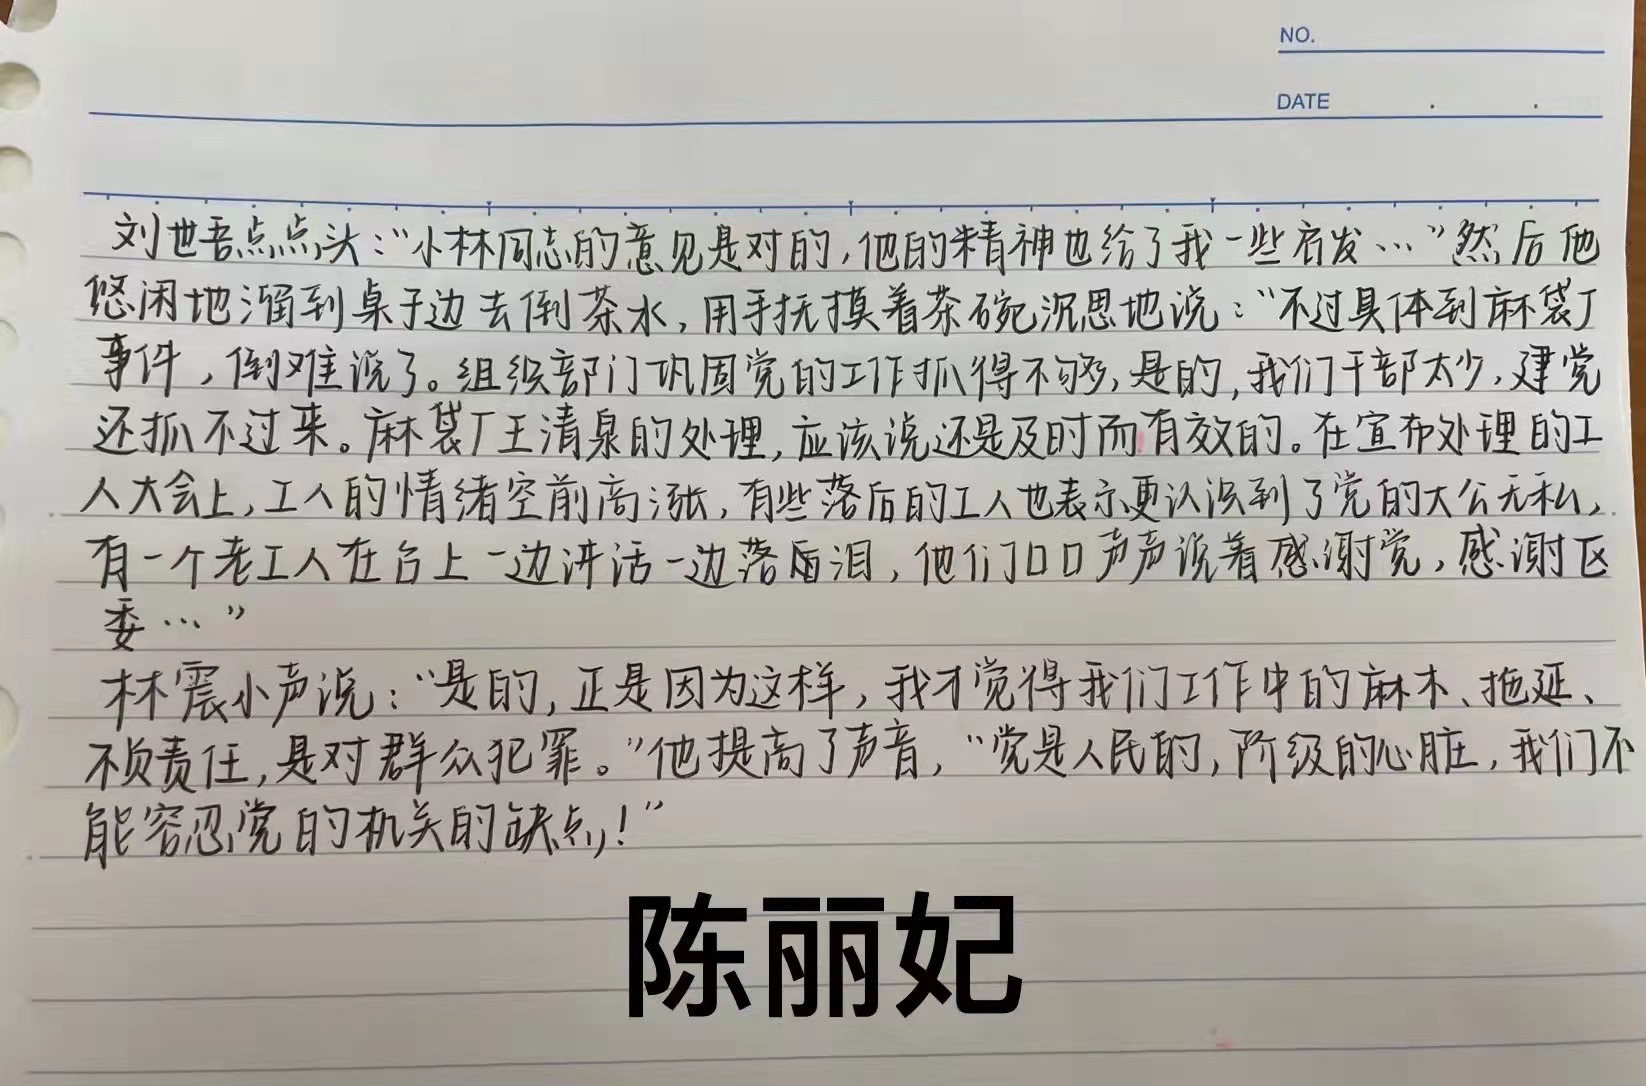 NO.
DATE
刘世吾点点头：“小林同志的意见是对的，他的精神也给了我一些启发…”然后他
悠闲地溜到桌子边去倒茶水，用手抚摸着茶碗沉思地说：“不过具体到麻袋厂
事件，倒难说了。组织部门巩固党的工作抓得不够，是的，我们干部太少，建党
还抓不过来。麻袋厂王清泉的处理，应该说还是及时而有效的。在宣布处理的工
人大会上，工人的情绪空前高涨，有些落后的工人也表示更认识到了党的大公无私，
有一个老工人在台上一边讲话一边落泪，他们口口声声说着感谢党，感谢区
委…”
林震小声说：“是的，正是因为这样，我才觉得我们工作中的麻木、拖延、
不负责任，是对群众犯罪。”他提高了声音，“党是人民的，阶级的心脏，我们不
能容忍党的机关的缺点！”
陈丽妃